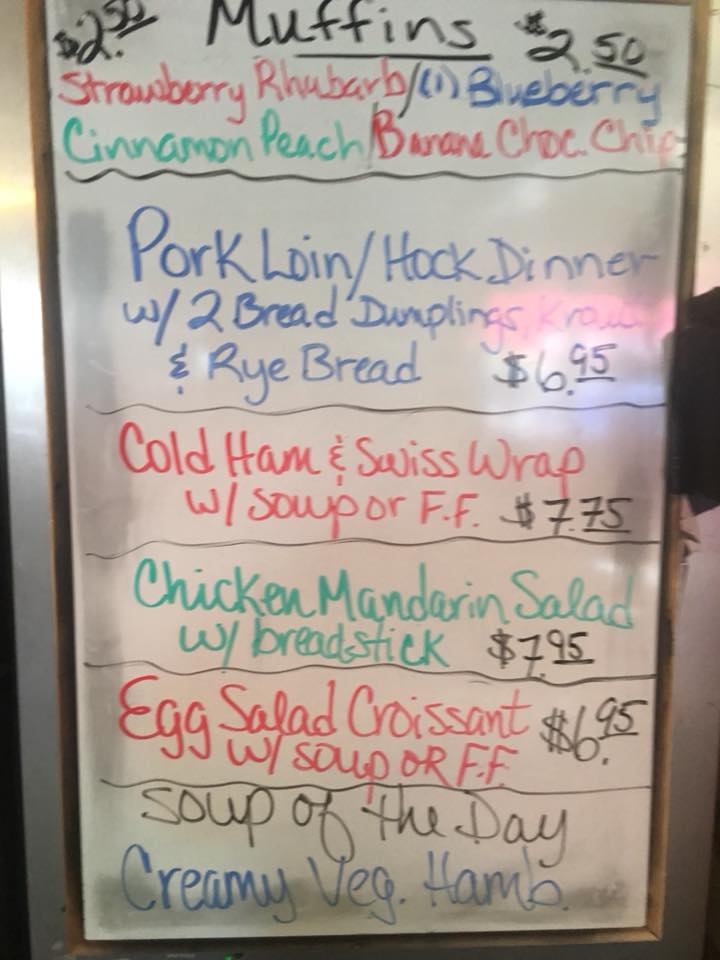 $2.50 Muffins $2.50
Strawberry Rhubarb/(1) Blueberry
Cinnamon Peach/Banana Choc. Chip
Pork Loin/Hock Dinner
w/ 2 Bread Dumplings, Kraut
& Rye Bread $6.95
Cold Ham & Swiss Wrap
w/ soup or F.F. $7.75
Chicken Mandarin Salad
w/ breadstick $7.95
Egg Salad Croissant $6.95
w/ soup OR F.F.
Soup of the Day
Creamy Veg. Hamb.